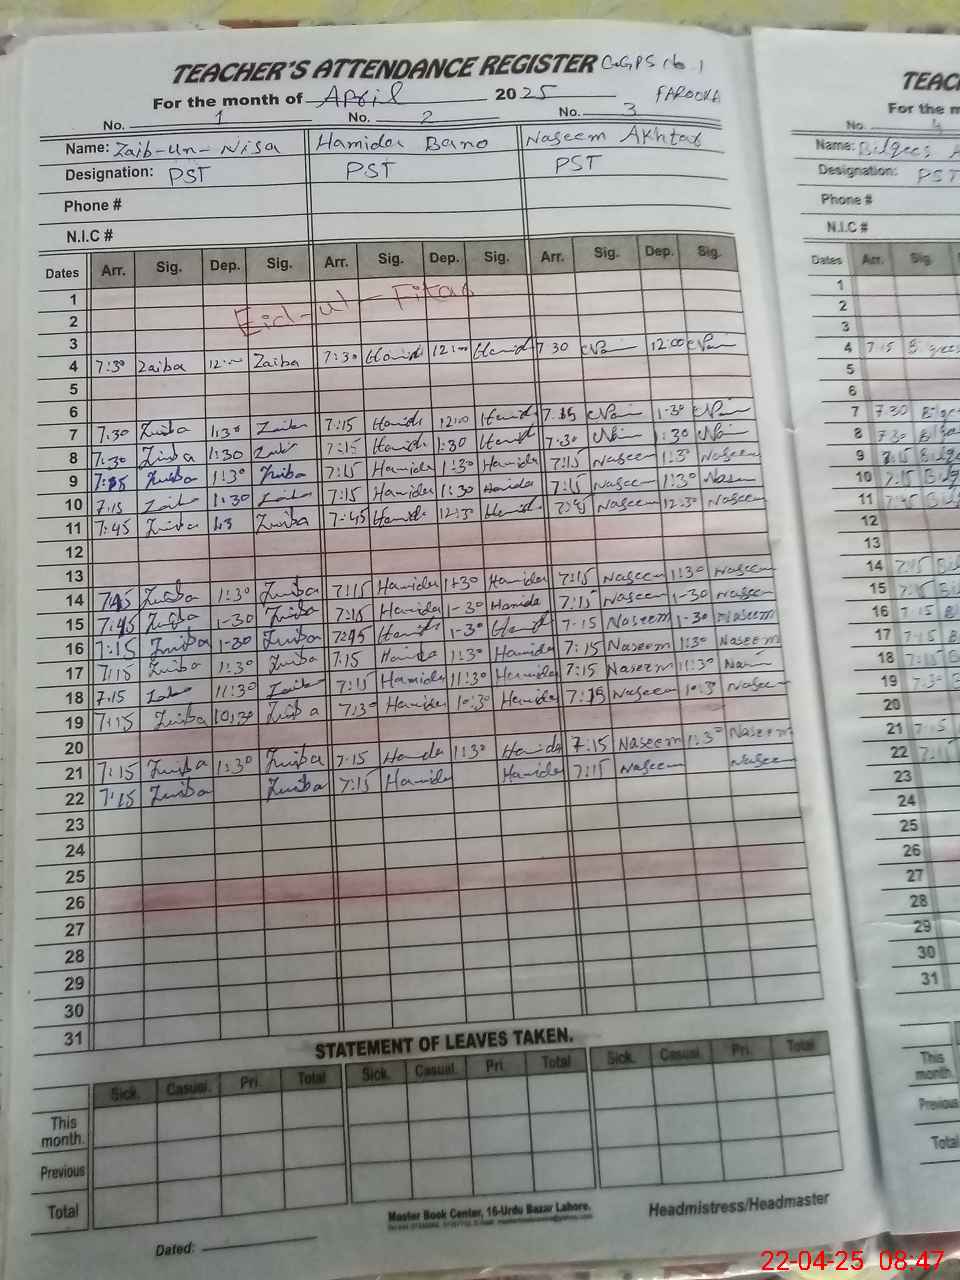 TEACHER'S ATTENDANCE REGISTER G.GPS No. 1
For the month of April 2025 FAROOKA
No. 1 No. 2 No. 3
Name: Zaib-un-Nisa Hamida Bano Naseem Akhtar
Designation: PST PST PST
Phone #
N.I.C #
Dates Arr. Sig. Dep. Sig. Arr. Sig. Dep. Sig. Arr. Sig. Dep. Sig.
1
2 Eid-ul-Fitar
3
4 7:30 Zaiba 12:00 Zaiba 7:30 Hamida 12:00 Hamida 7 30 12:00
5
6
7 7:30 Zaiba 1:30 Zaiba 7:15 Hamida 12:00 Hamida 1-30
8 7:30 Zaiba 1:30 Zaiba 7:15 Hamida 1:30 Hamida 7:30 1:30
9 Zaiba 1:30 Zaiba 7:15 Hamida 1:30 Hamida 7:15 Naseem 1:30 Naseem
10 7:15 Zaiba 1:30 Zaiba 7:15 Hamida 1:30 Hamida 7:15 Naseem 1:30 Naseem
11 7:45 Zaiba Zaiba 7:45 Hamida 12:30 Hamida Naseem 12:30 Naseem
12
13
14 Zaiba 1:30 Zaiba 7:15 Hamida 1:30 Hamida 7:15 Naseem 1:30 Naseem
15 Zaiba 1-30 Zaiba 7:15 Hamida 1-30 Hamida 7:15 Naseem 1-30 Naseem
16 7:15 Zaiba 1-30 Zaiba Hamida 1-30 Hamida 7:15 Naseem 1-30 Naseem
17 7:15 Zaiba 1:30 Zaiba 7:15 Hamida 1:30 Hamida 7:15 Naseem 1:30 Naseem
18 7:15 Zaiba 11:30 Zaiba 7:15 Hamida 11:30 Hamida 7:15 Naseem 11:30
19 7:15 Zaiba 10:30 Zaiba 7:30 Hamida 10:30 Hamida 7:15 Naseem 10:30 Naseem
20
21 7:15 Zaiba 1:30 Zaiba 7:15 Hamida 1:30 Hamida 7:15 Naseem 1:30 Naseem
22 7:15 Zaiba Zaiba 7:15 Hamida Hamida 7:15 Naseem Naseem
23
24
25
26
27
28
29
30
31
STATEMENT OF LEAVES TAKEN.
Sick. Casual. Pri. Total Sick. Casual. Pri. Total Sick. Casual. Pri. Total
This month.
Previous
Total
Master Book Center, 16-Urdu Bazar Lahore.
Headmistress/Headmaster
Dated:
TEAC
For the m
No. 4
Name: Bilqees A
Designation: PST
Phone #
N.I.C #
Dates Arr. Sig.
1
2
3
4 7:15
5
6
7 7:30
8 7:30
9
10
11
12
13
14
15
16 7:15
17
18
19
20
21 7:15
22 7:15
23
24
25
26
27
28
29
30
31
This month.
Previous
Total
22-04-25 08:47